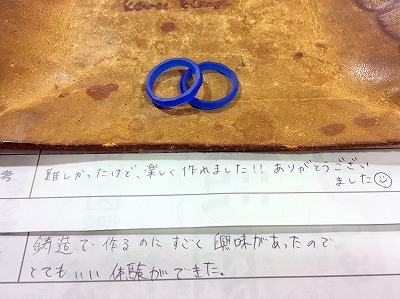 考
難しかったけど、楽しく作れました!! ありがとうござい
ました☺
鋳造で作るのにすごく興味があったので
とてもいい体験ができた。